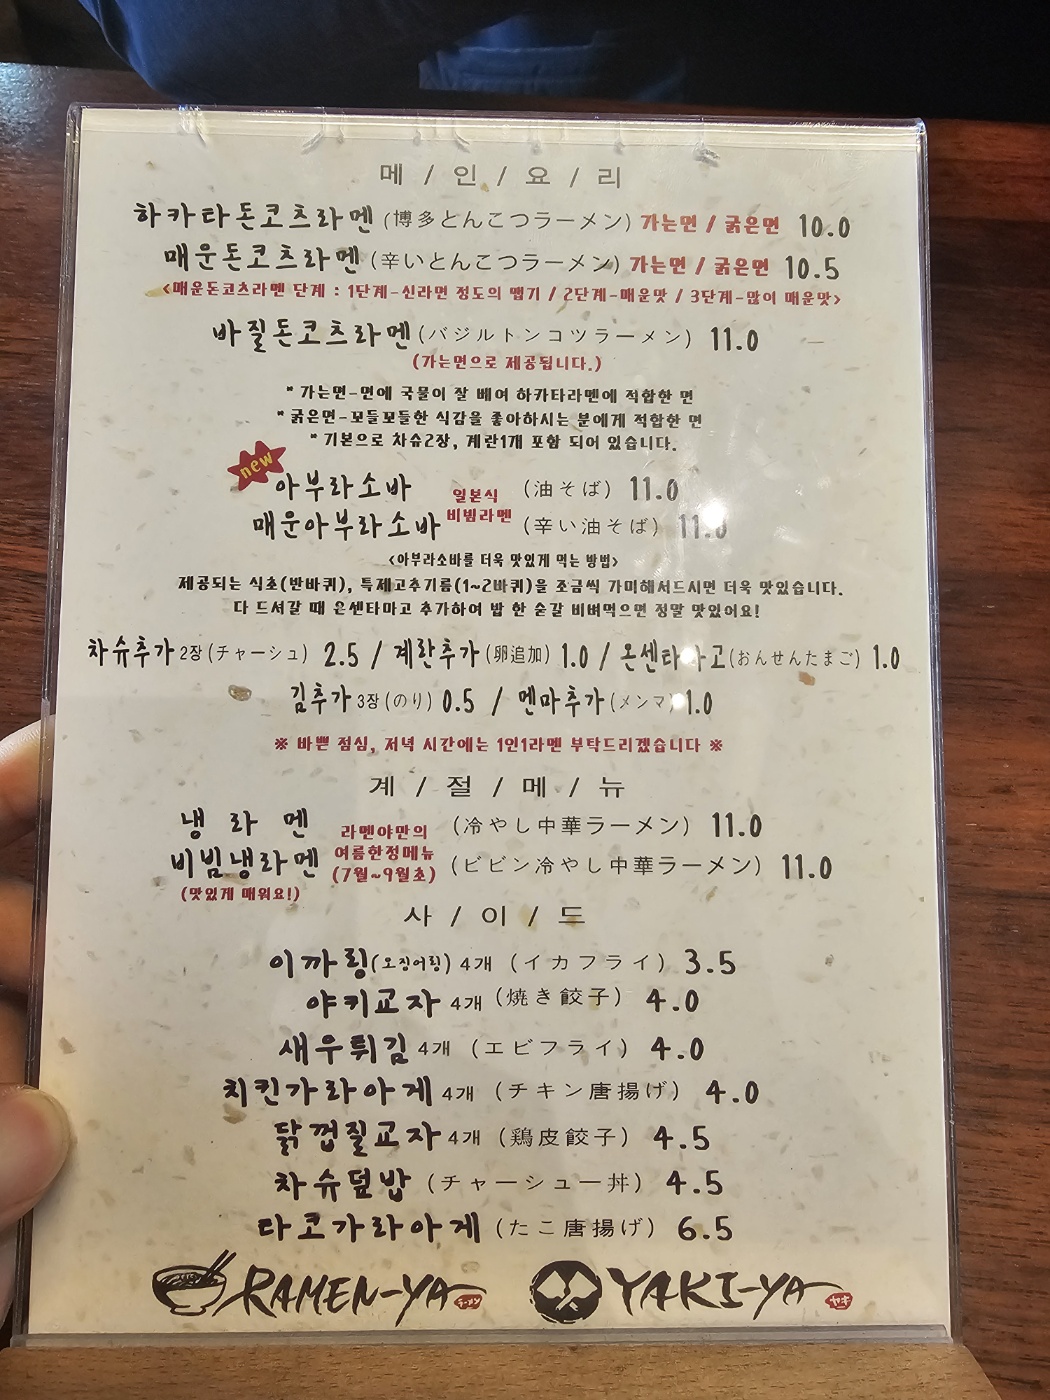 메 / 인 / 요 / 리
하카타돈코츠라멘 (博多とんこつラーメン) 가는면 / 굵은면 10.0
매운돈코츠라멘 (辛いとんこつラーメン) 가는면 / 굵은면 10.5
<매운돈코츠라멘 단계 : 1단계-신라면 정도의 맵기 / 2단계-매운맛 / 3단계-많이 매운맛>
바질돈코츠라멘 (バジルトンコツラーメン) 11.0
(가는면으로 제공됩니다.)
* 가는면-면에 국물이 잘 베여 하카타라멘에 적합한 면
* 굵은면-꼬들꼬들한 식감을 좋아하시는 분에게 적합한 면
* 기본으로 차슈2장, 계란1개 포함 되어 있습니다.
new
아부라소바 일본식 (油そば) 11.0
매운아부라소바 비빔라멘 (辛い油そば) 11.0
<아부라소바를 더욱 맛있게 먹는 방법>
제공되는 식초(반바퀴), 특제고추기름(1~2바퀴)을 조금씩 가미해서드시면 더욱 맛있습니다.
다 드셔갈 때 온센타마고 추가하여 밥 한 숟갈 비벼먹으면 정말 맛있어요!
차슈추가 2장 (チャーシュ) 2.5 / 계란추가 (卵追加) 1.0 / 온센타마고 (おんせんたまご) 1.0
김추가 3장 (のり) 0.5 / 멘마추가 (メンマ) 1.0
※ 바쁜 점심, 저녁 시간에는 1인1라멘 부탁드리겠습니다 ※
계 / 절 / 메 / 뉴
냉 라 멘 라멘야만의 (冷やし中華ラーメン) 11.0
비빔냉라멘 여름한정메뉴 (ビビン冷やし中華ラーメン) 11.0
(맛있게 매워요!) (7월~9월초)
사 / 이 / 드
이까링(오징어링) 4개 (イカフライ) 3.5
야키교자 4개 (焼き餃子) 4.0
새우튀김 4개 (エビフライ) 4.0
치킨가라아게 4개 (チキン唐揚げ) 4.0
닭껍질교자 4개 (鶏皮餃子) 4.5
차슈덮밥 (チャーシュー丼) 4.5
타코가라아게 (たこ唐揚げ) 6.5
RAMEN-YA YAKI-YA